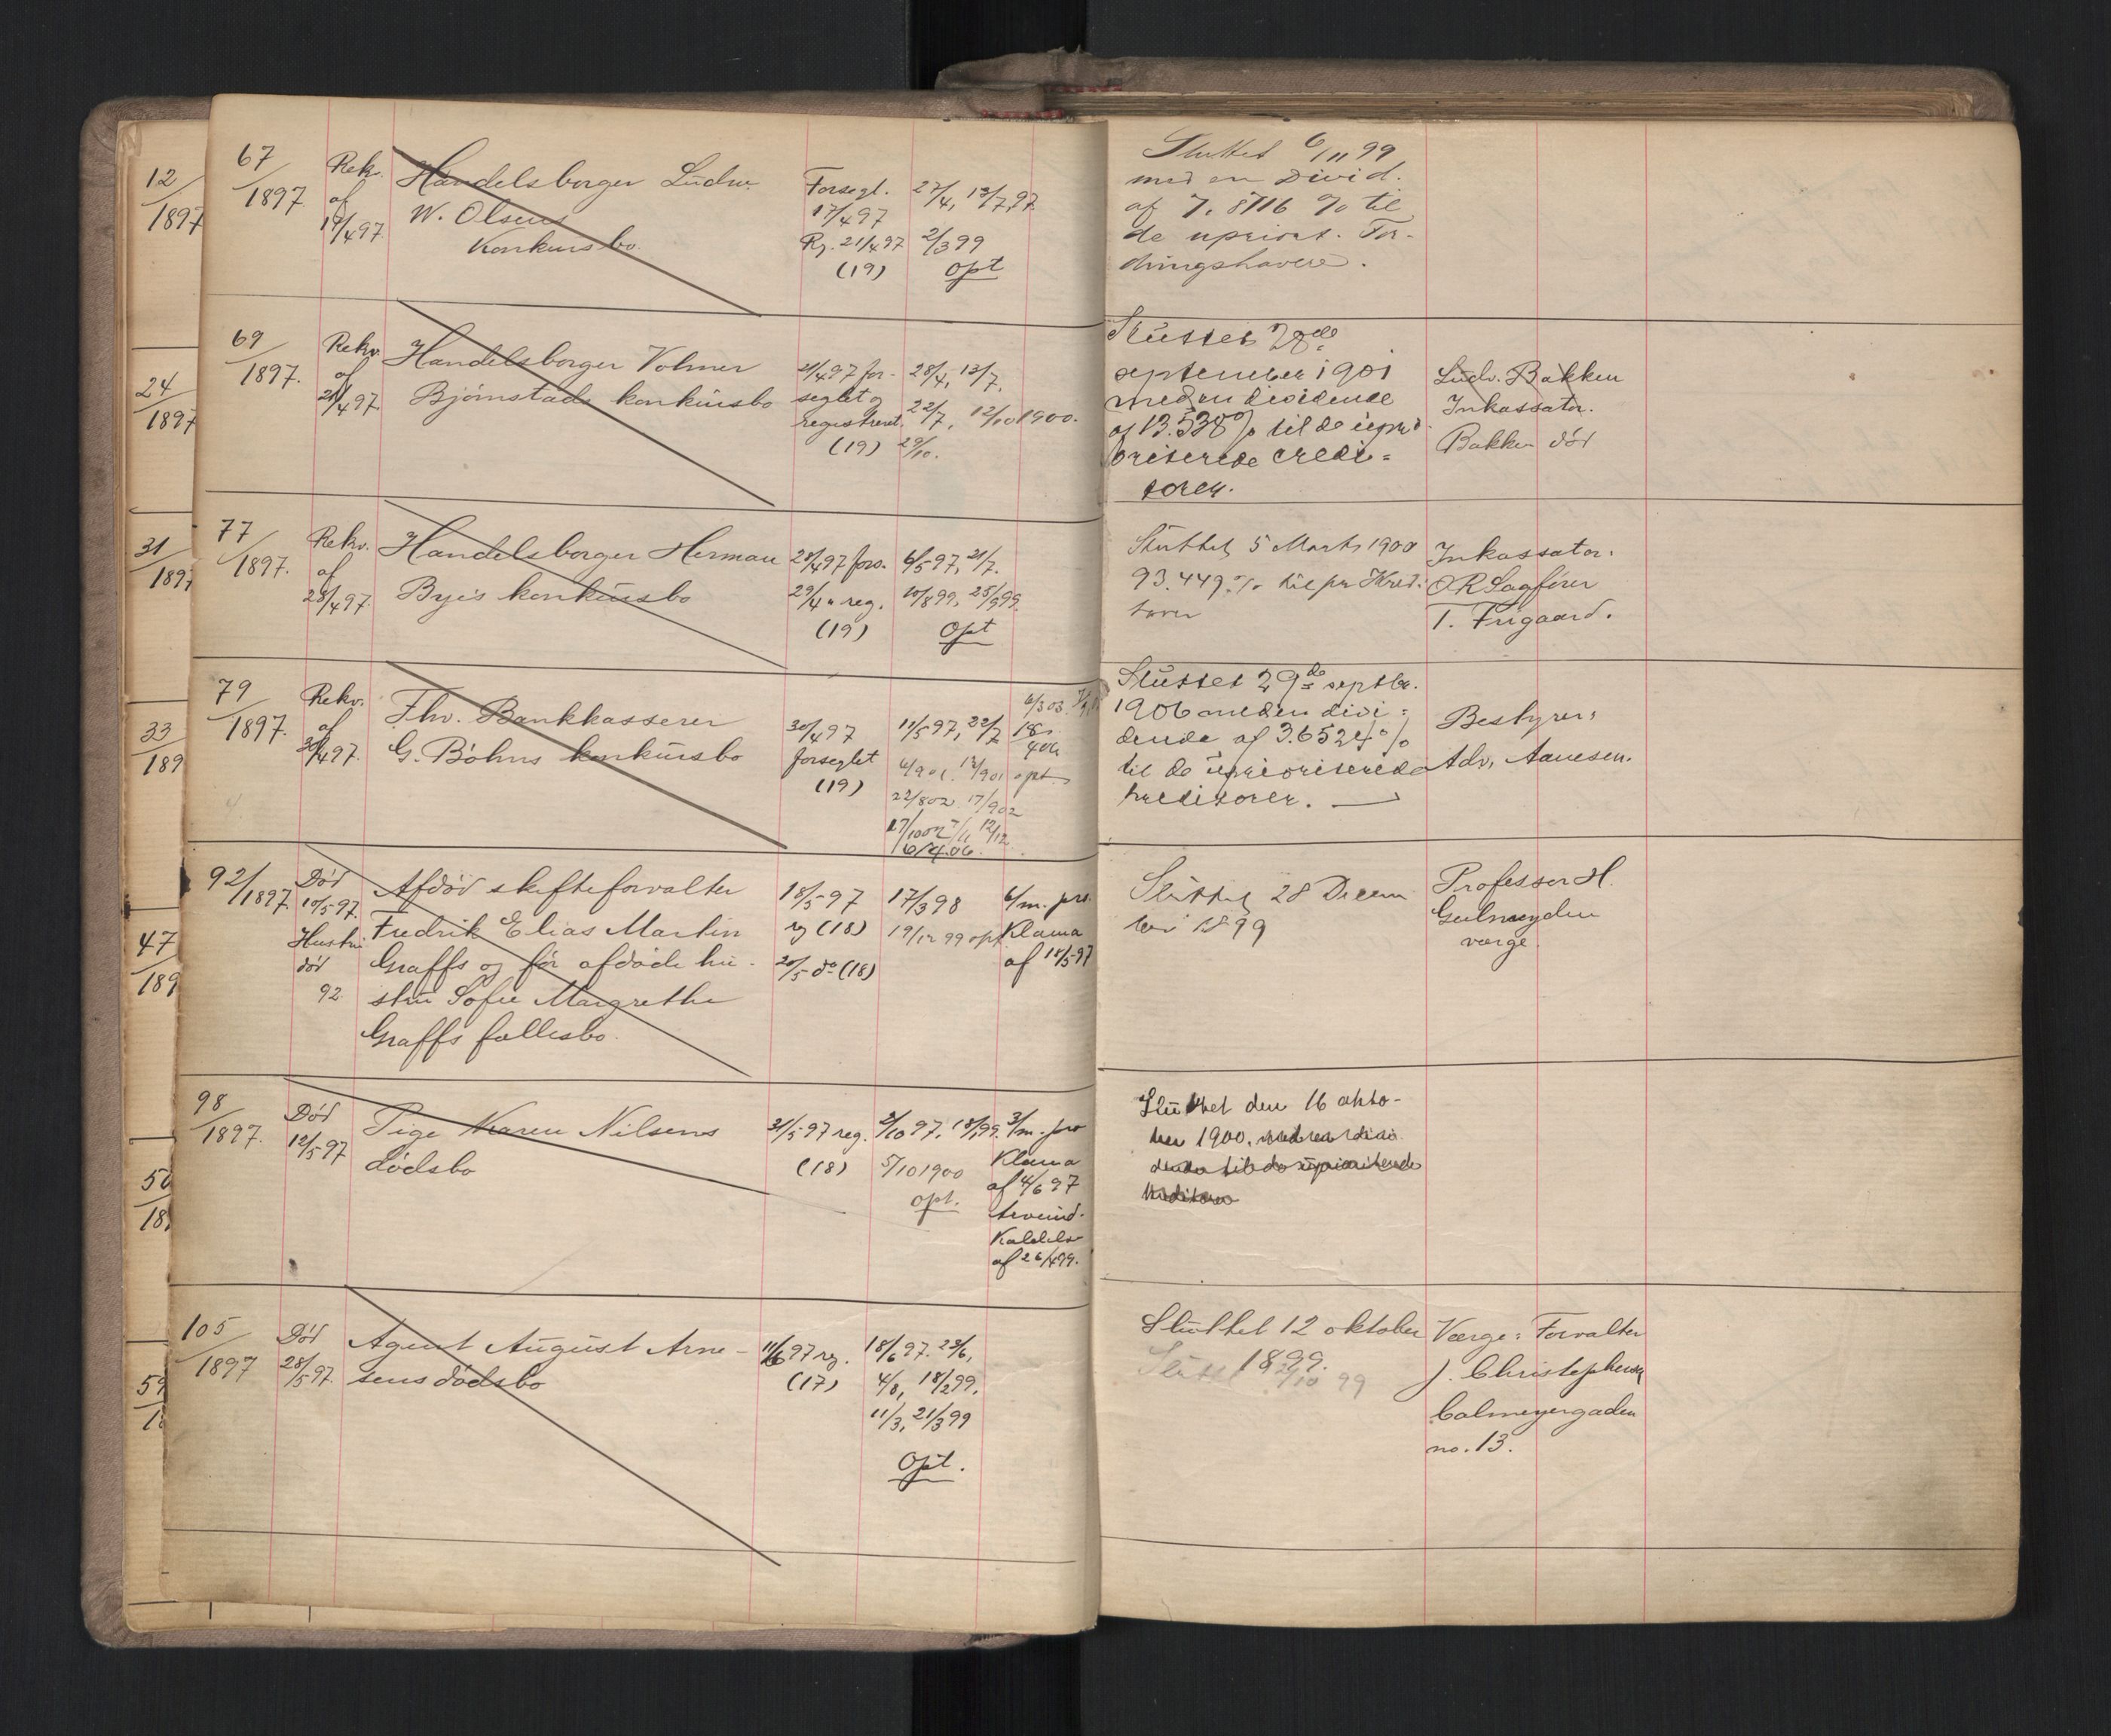 12
1897
24
1897
31
1897
33
189
47
189
50
18
59
67
1897
Rekv.
af
Handelsborger Ludw.
W. Olsens
Konkursbo.
Forsegl.
17/4 97
Rg. 21/4 97
(19)
27/4, 13/7 97
2/3 99
Opt
Sluttet 6/11 99
med en Divid.
af 7.8716 % til
de upriort. For-
dringshavere.
69
1897.
Rekv.
af
21/4 97
Handelsborger Volmer
Bjørnstads konkursbo
21/4 97 for-
seglet og
registreret.
(19)
28/4, 13/7.
22/7, 12/10 1900.
29/10.
Sluttet 28de
september 1901
med en dividende
af 13.538% til de upri-
oriterede credi=
torer.
Ludv. Bakken
Inkassator.
Bakken død
77
1897.
Rekv.
af
28/4 97.
Handelsborger Herman
Bye's konkursbo
28/4 97 fors.
29/4 " reg.
(19)
6/5 97, 21/7.
10/8 99, 25/9 99.
Opt
Sluttet 5 Marts 1900
93.449 % til pr Kredi-
torer
Inkassator:
ORSagfører
T. Frigaard.
79
1897.
Rekv.
af
30/4 97.
Fhv. Bankkasserer
G. Bøhns konkursbo
30/4 97
forseglet
(19)
11/5 97, 22/7
6/9 01. 12/9 01
22/8 02 17/9 02
27/10 02 7/11 12/12
6/4 06.
6/3 03.
18
4 06
opt.
Sluttet 29de septbr.
1906 med en divi=
dende af 3.6524%
til de uprioriterede
kreditorer.
Bestyrer:
Adv. Aanesen.
92/1897.
Død
10/5 97.
Hustru
død
92
Afdød skifteforvalter
Fredrik Elias Martin
Graffs og før afdøde hu-
stru Sofie Margrethe
Graffs fællesbo.
18/5 97
rg (18)
20/5 do (18)
17/3 98
19/12 99 opt
6/m. pro
Klama
af 18/5 97
Sluttet 28 Decem
ber 1899
Professor H.
Guldmyden
værge
98
1897.
Død
12/5 97
Pige Karen Nilsens
dødsbo
21/5 97 reg.
(18)
5/10 1900
opt.
3/m. pro
Klama
af 4/6 97
Kaldelse
af 26/4 99.
Sluttet den 16 okto-
ber 1900. med en divi-
dende til de uprioriterede
kreditorer
105
1897
Død
28/5 97.
Agent August Arne-
sens dødsbo
11/6 97 reg.
(17)
18/6 97. 23/6,
4/8, 18/2 99,
11/3, 21/3 99
Opt.
Sluttet 12 oktober
1899.
Værge: Forvalter
J. Christophersen
Calmeyergaden
no. 13.